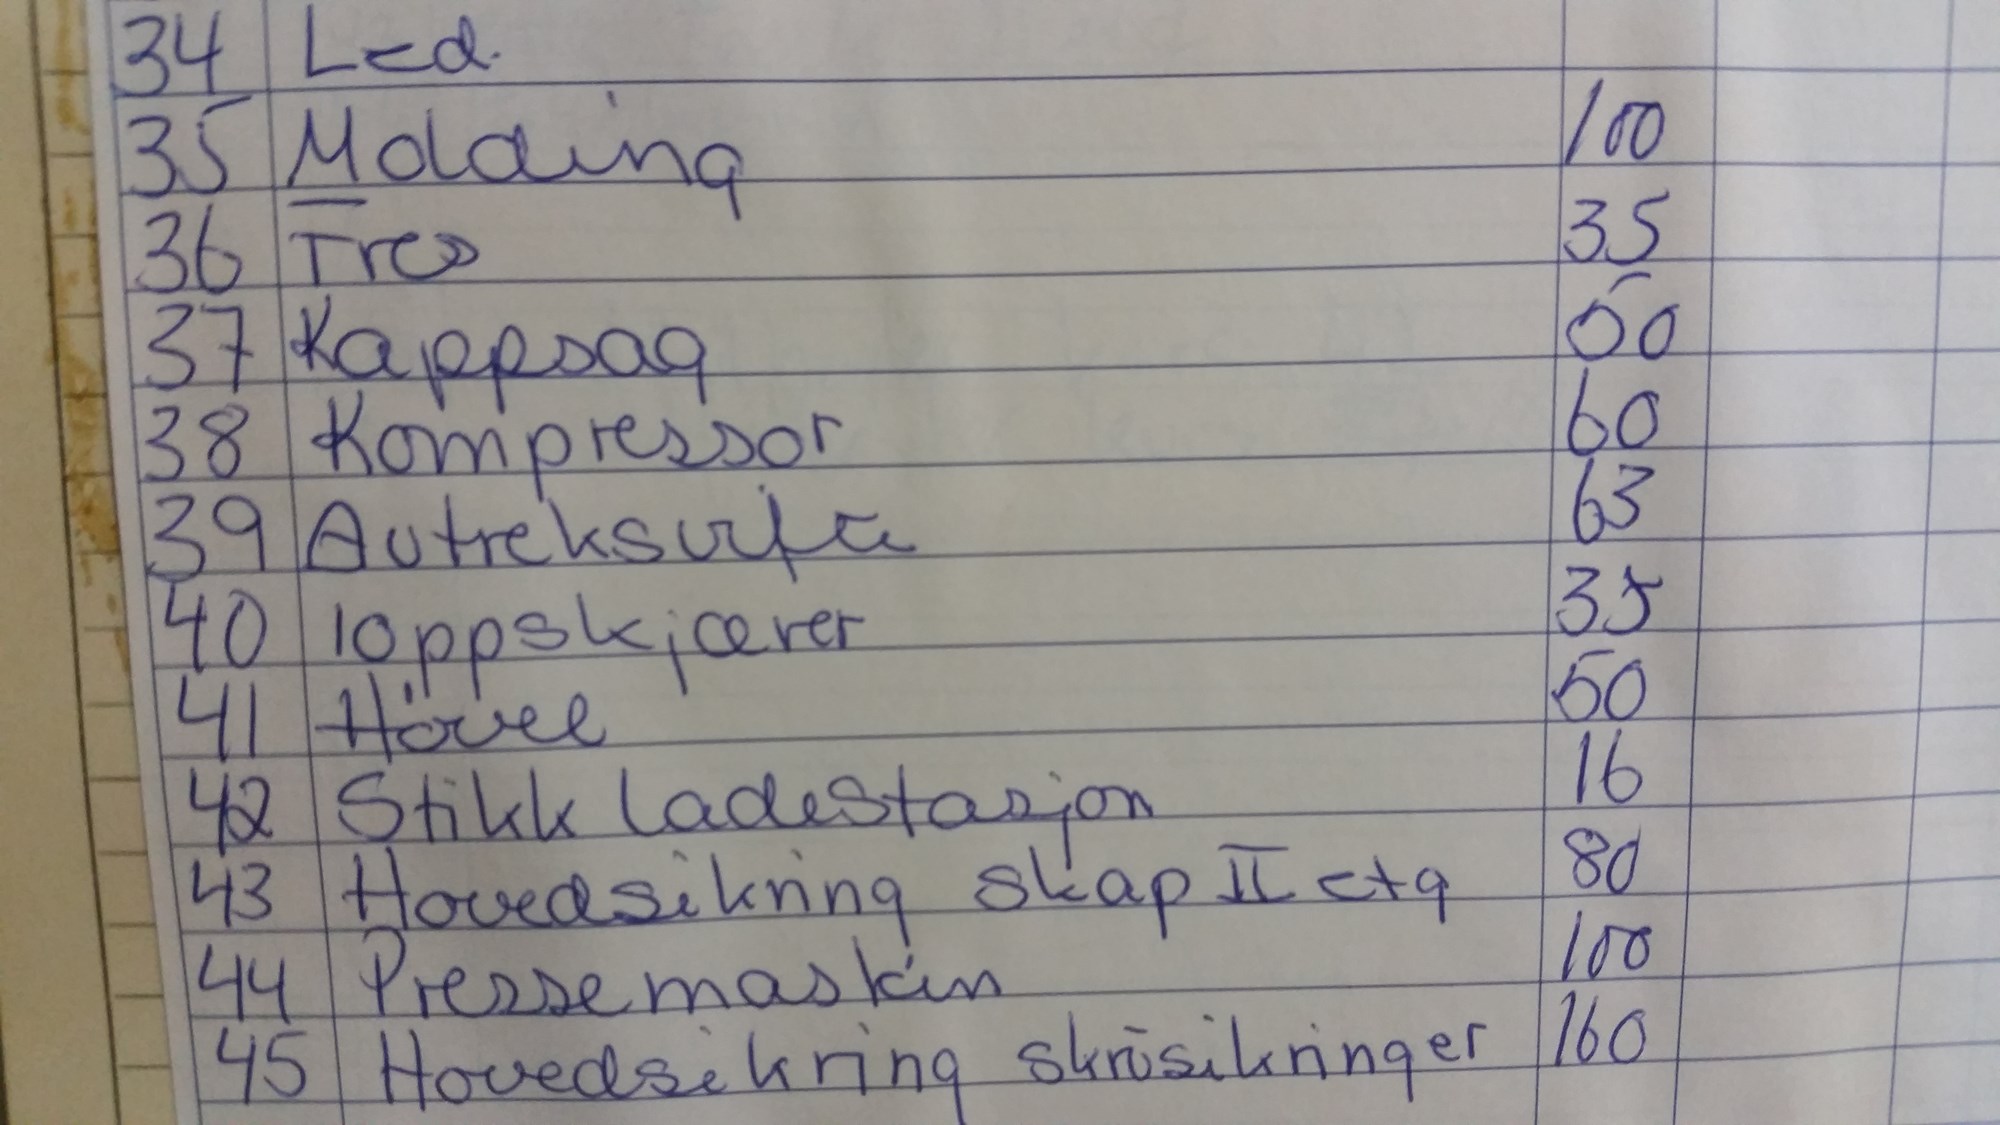 34 Led.
35 Molding 100
36 Fres 35
37 Kappsag 50
38 Kompressor 60
39 Avtreksvifte 63
40 loppskjærer 35
41 Hövel 50
42 Stikk ladestasjon 16
43 Hovedsikring skap II etg 80
44 Pressemaskin 100
45 Hovedsikring skrūsikringer 160